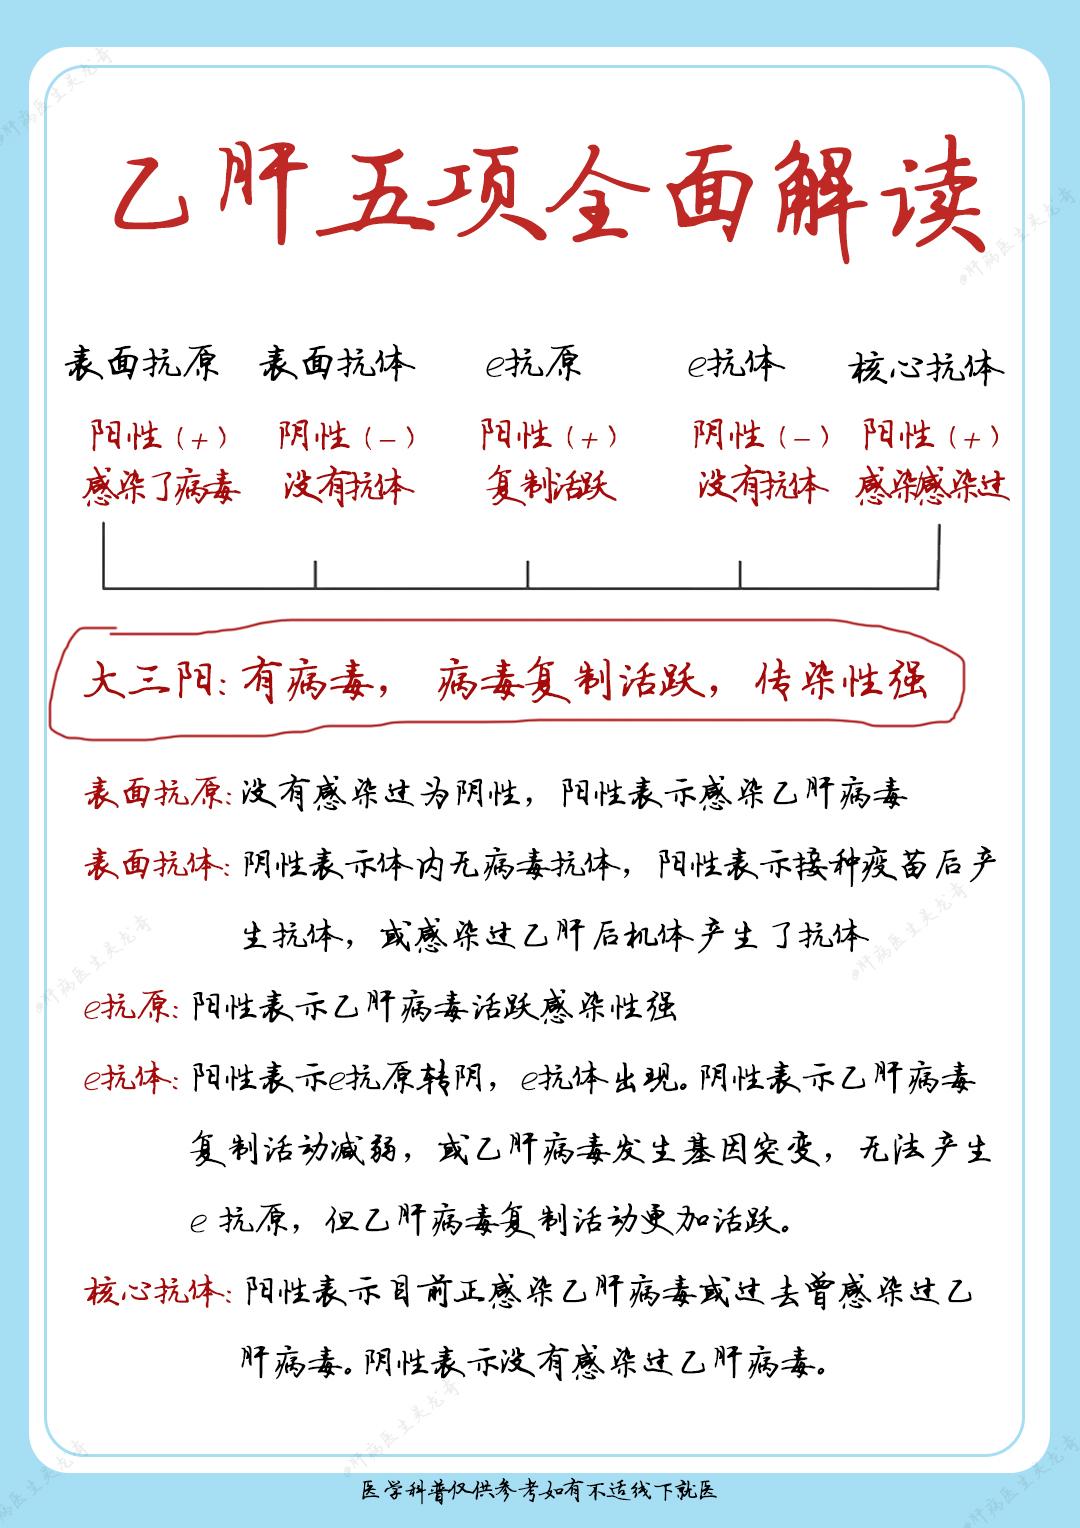 乙肝五项全面解读
表面抗原 表面抗体 e抗原 e抗体 核心抗体
阳性（+） 阴性（-） 阳性（+） 阴性（-） 阳性（+）
感染了病毒 没有抗体 复制活跃 没有抗体 感染感染过
大三阳：有病毒， 病毒复制活跃，传染性强
表面抗原：没有感染过为阴性，阳性表示感染乙肝病毒
表面抗体：阴性表示体内无病毒抗体，阳性表示接种疫苗后产
生抗体，或感染过乙肝后机体产生了抗体
e抗原：阳性表示乙肝病毒活跃感染性强
e抗体：阳性表示e抗原转阴，e抗体出现。阴性表示乙肝病毒
复制活动减弱，或乙肝病毒发生基因突变，无法产生
e 抗原，但乙肝病毒复制活动更加活跃。
核心抗体：阳性表示目前正感染乙肝病毒或过去曾感染过乙
肝病毒。阴性表示没有感染过乙肝病毒。
医学科普仅供参考如有不适线下就医
@肝病医生吴龙奇
@肝病医生吴龙奇
@肝病医生吴龙奇
@肝病医生吴龙奇
@肝病医生吴龙奇
@肝病医生吴龙奇
@肝病医生吴龙奇